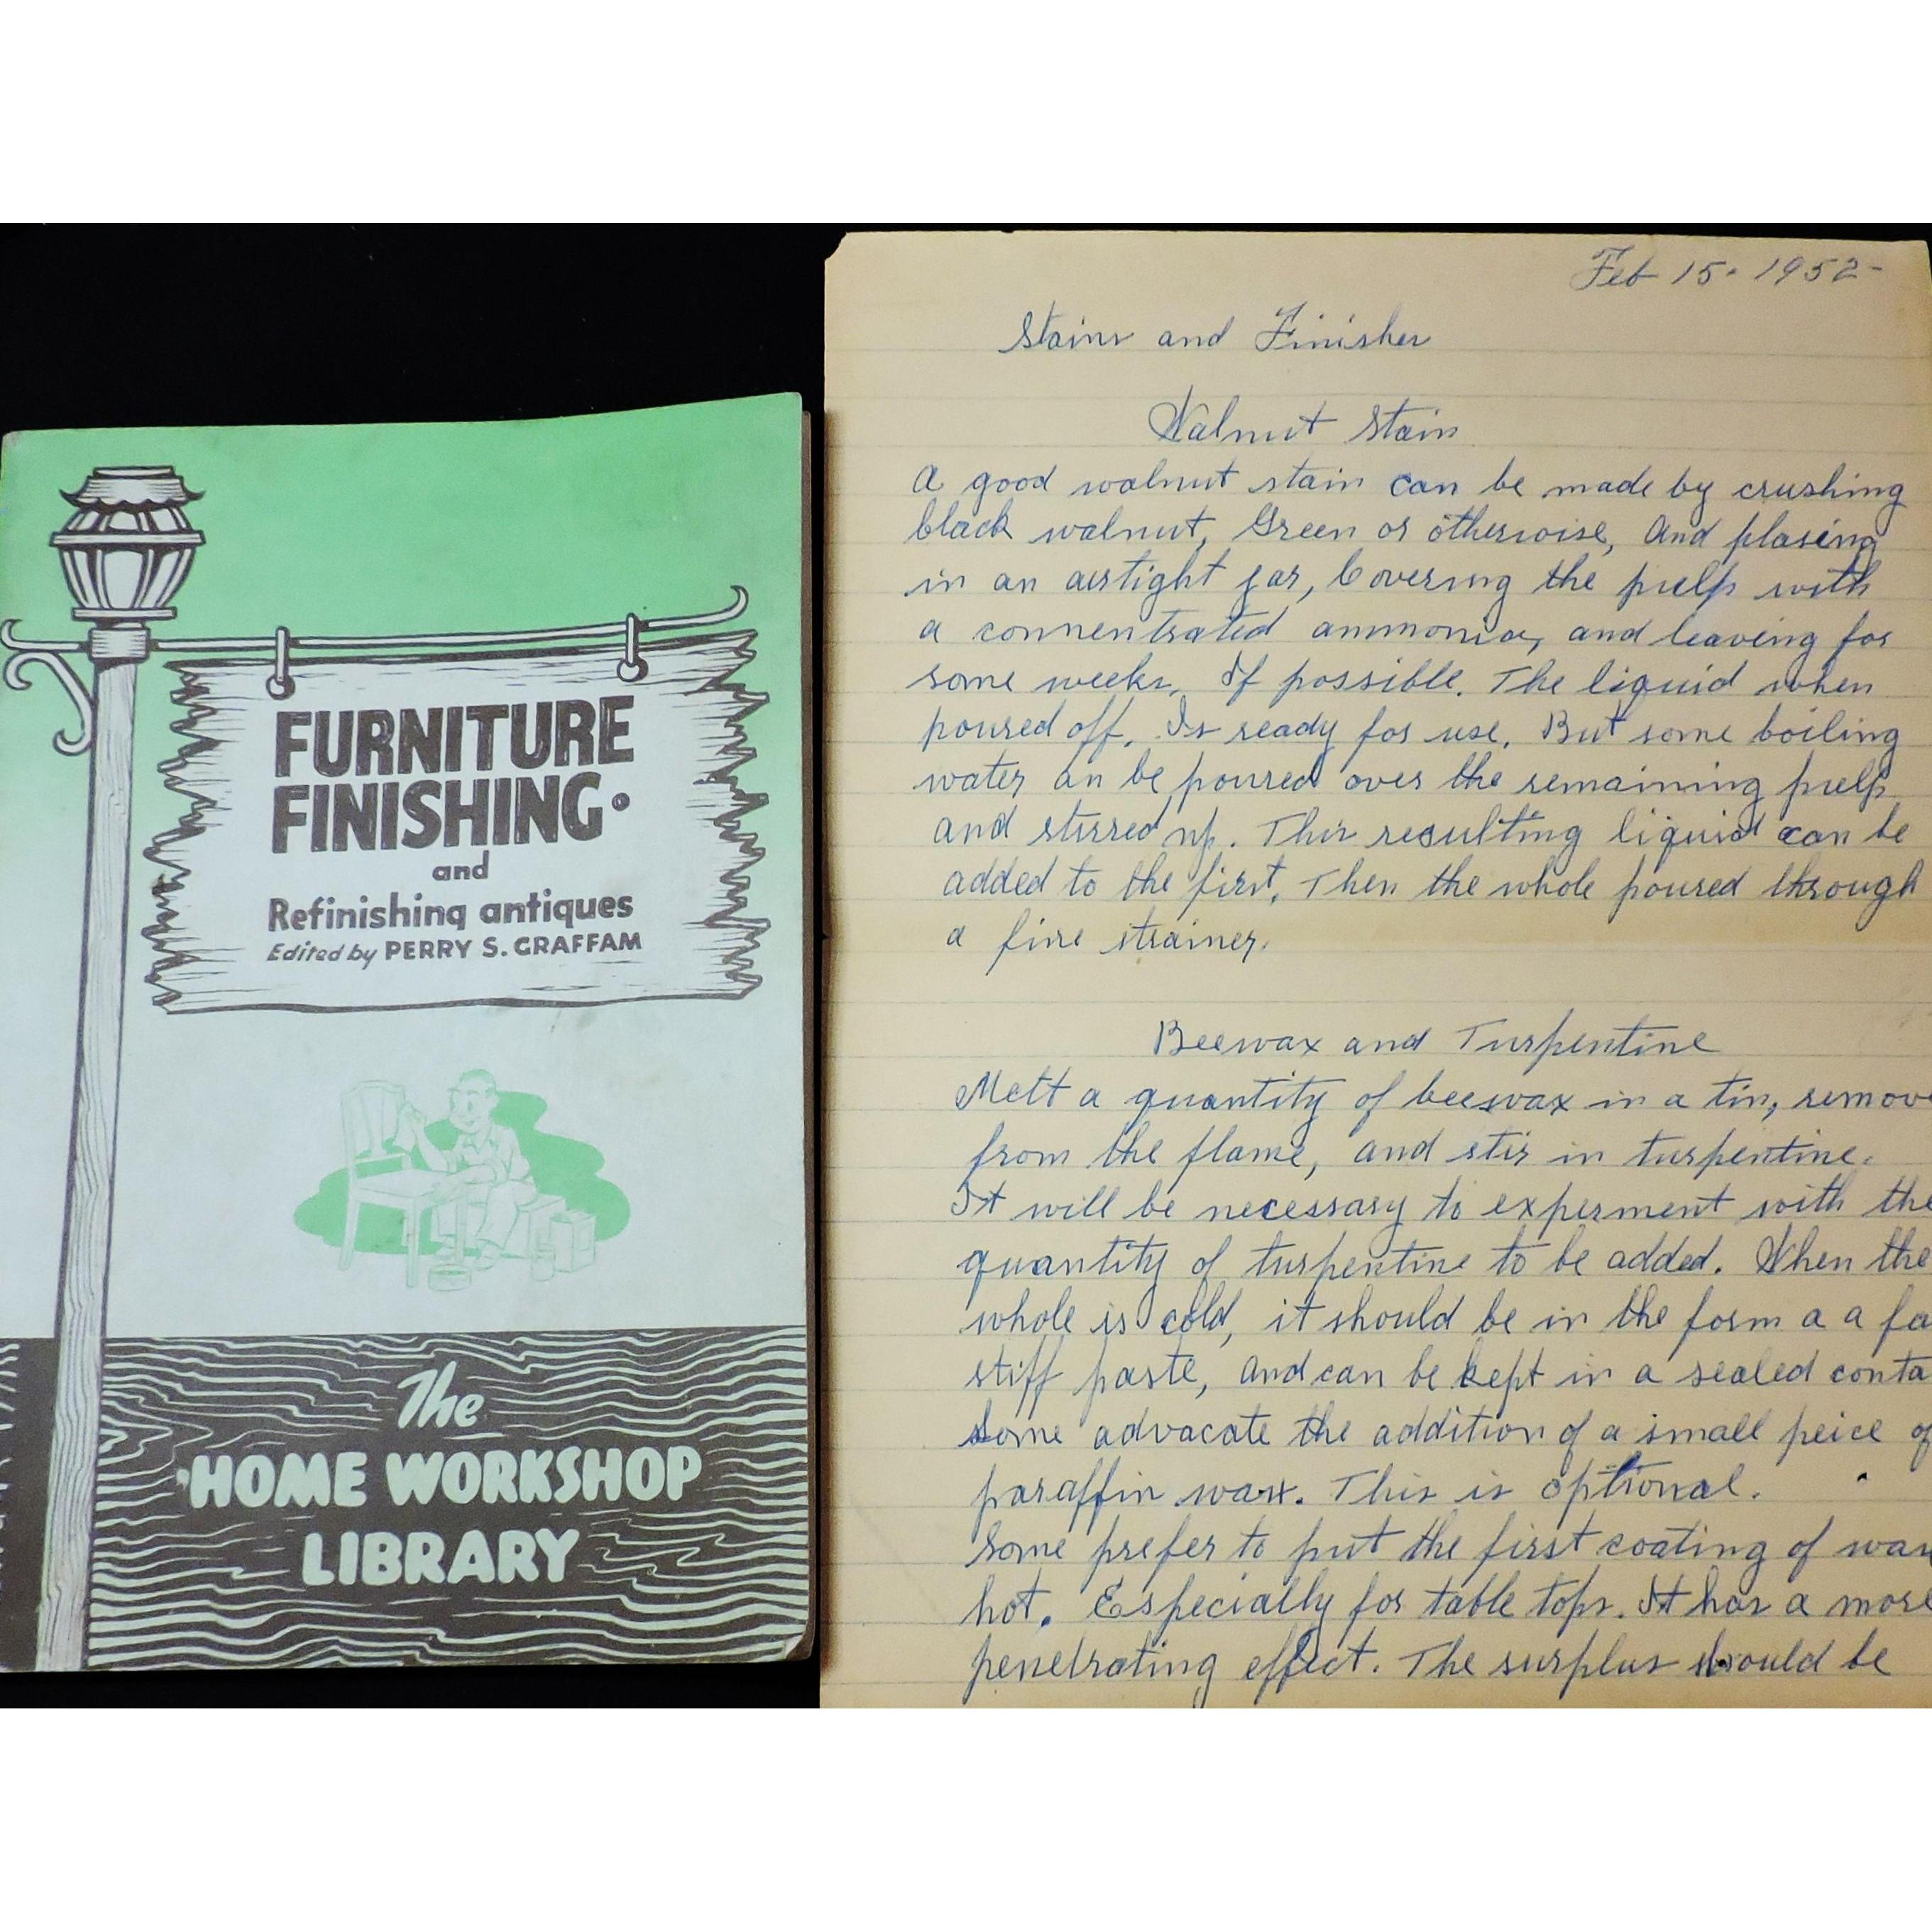 FURNITURE
FINISHING
and
Refinishing antiques
Edited by PERRY S. GRAFFAM
The
HOME WORKSHOP
LIBRARY
Feb 15 - 1952 -
Stains and Finishes
Walnut Stain
A good walnut stain can be made by crushing
black walnut, Green or otherwise, And plasing
in an airtight jar, Covering the pulp with
a connentrated ammonia, and leaving for
some weeks, If possible. The liquid when
poured off, Is ready for use, But some boiling
water an be poured over the remaining pulp
and stirred up. This resulting liquid can be
added to the first, Then the whole poured through
a fine strainer.
Beewax and Turpentine
Melt a quantity of beeswax in a tin, remove
from the flame, and stir in turpentine.
It will be necessary to experment with the
quantity of turpentine to be added. When the
whole is cold, it should be in the form a a fa
stiff paste, And can be kept in a sealed conta
Some advacate the addition of a small peice of
paraffin wax. This is optional.
Some prefer to put the first coating of wax
hot. Especially for table tops. It has a more
penetrating effect. The surplus should be